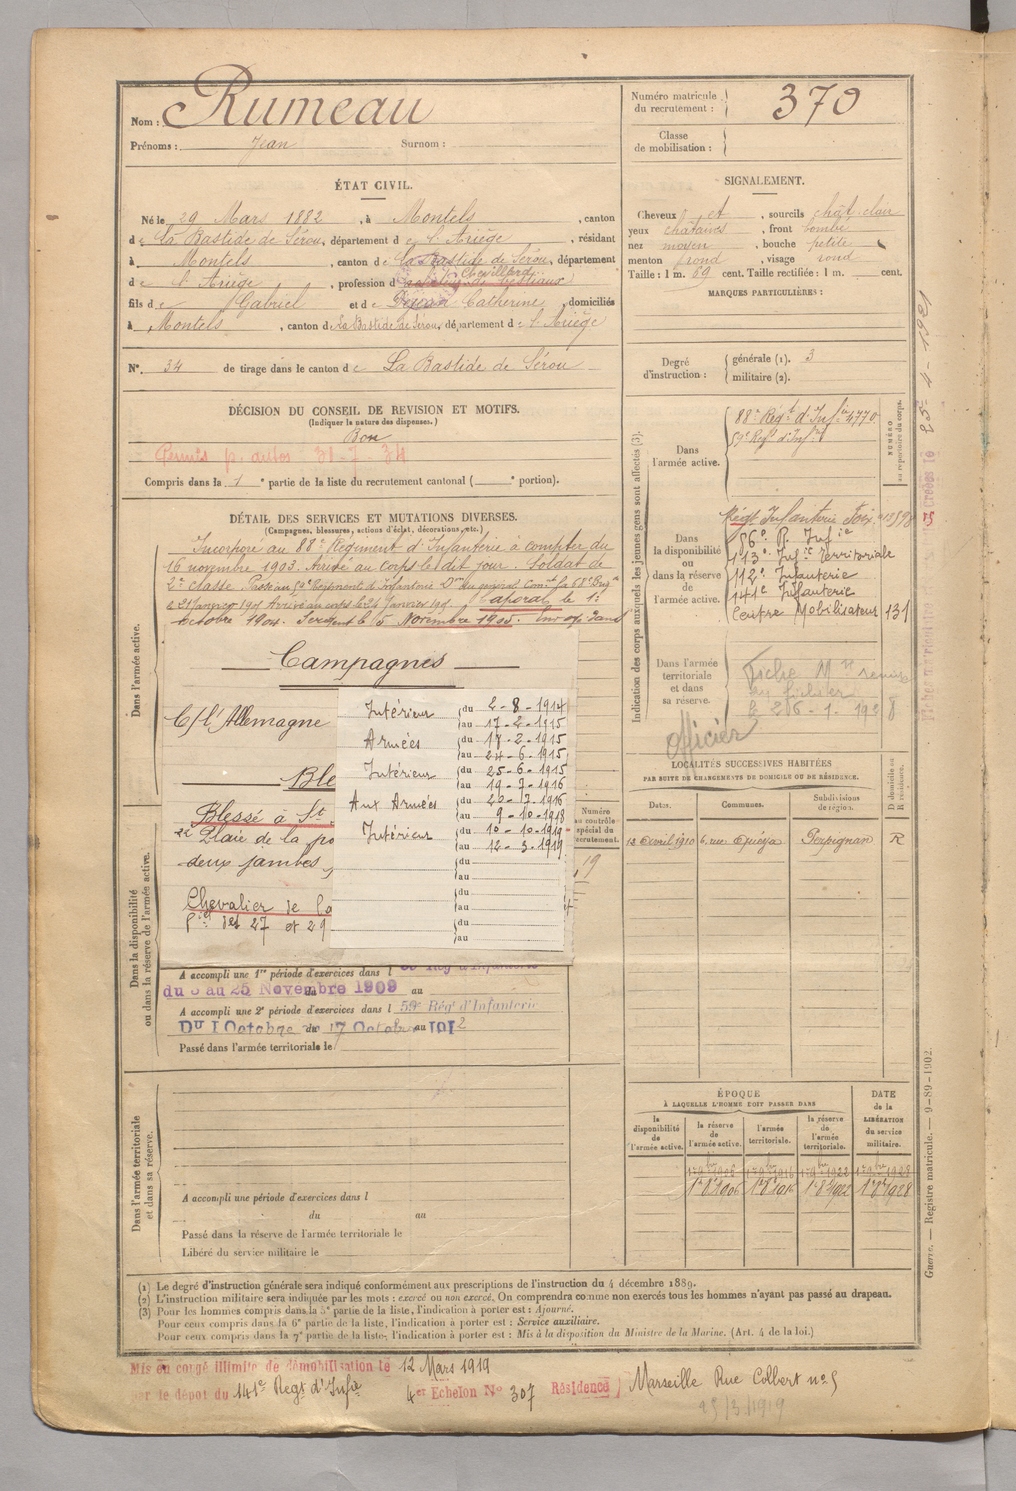 Nom : Rumeau
Prénoms : Jean Surnom :
Numéro matricule du recrutement : 370
Classe de mobilisation :
ÉTAT CIVIL.
Né le 29 Mars 1882, à Montels, canton
de La Bastide de Sérou, département de l'Ariège, résidant
à Montels, canton de La Bastide de Sérou, département
de l'Ariège, profession de Chevillard
fils de Gabriel et de Catherine, domiciliés
à Montels, canton de La Bastide de Sérou, département de l'Ariège
N° 34 de tirage dans le canton de La Bastide de Sérou
DÉCISION DU CONSEIL DE REVISION ET MOTIFS.
(Indiquer la nature des dispenses.)
Bon
Permis p. autos 31-7 34
Compris dans la 1e partie de la liste du recrutement cantonal ( e portion).
DÉTAIL DES SERVICES ET MUTATIONS DIVERSES.
(Campagnes, blessures, actions d'éclat, décorations, etc.)
Dans l'armée active.
Incorporé au 88e Régiment d'Infanterie à compter du
16 novembre 1903. Arrivé au corps le dit jour. Soldat de
2e classe. Passé au 59e Régiment d'Infanterie
aporal le 1e
Octobre 1904. Sergent le 5 Novembre 1905.
Campagnes
C/ l'Allemagne
Intérieur du 2-8-1914
au 17-2-1915
Armées du 17-2-1915
au 24-6-1915
Intérieur du 25-6-1915
au 19-7-1916
Aux Armées du 20-7-1916
au 9-10-1918
Intérieur du 10-10-1919
au 12-3-1919
du
au
du
au
du
au
Ble
Blessé à St
Plaie de la po
deux jambes,
Chevalier de
27 et 29
Numéro au contrôle spécial du recrutement.
19
Dans la disponibilité ou dans la réserve de l'armée active.
A accompli une 1re période d'exercices dans l
du au 25 Novembre 1909 au
A accompli une 2e période d'exercices dans l 59e Régt d'Infanterie
Du 1 Octobre du 17 Octobre au 1912
Passé dans l'armée territoriale le
Dans l'armée territoriale et dans sa réserve.
A accompli une période d'exercices dans l
du au
Passé dans la réserve de l'armée territoriale le
Libéré du service militaire le
SIGNALEMENT.
Cheveux et, sourcils chât clair
yeux châtaires, front bombé
nez moyen, bouche petite
menton rond, visage rond
Taille : 1 m. 69 cent. Taille rectifiée : 1 m. cent.
MARQUES PARTICULIÈRES :
Degré d'instruction : générale (1). 3
militaire (2).
Indication des corps auxquels les jeunes gens sont affectés (3).
NUMÉRO au répertoire du corps.
Dans l'armée active.
88e Régt d'Infie 4770
59e Régt d'Infie
Dans la disponibilité ou dans la réserve de l'armée active.
Régt Infanterie Foix
56e R. Infie
113e Infie Territoriale
112e Infanterie
141e Infanterie
Centre Mobilisateur 131
Dans l'armée territoriale et dans sa réserve.
Fiche Mle remise
au fichier
le 26-1-1928
Officier
LOCALITÉS SUCCESSIVES HABITÉES
PAR SUITE DE CHANGEMENTS DE DOMICILE OU DE RÉSIDENCE.
Dates. Communes. Subdivisions de région. D domicile ou R résidence.
13 Avril 1910 Perpignan R
ÉPOQUE
À LAQUELLE L'HOMME DOIT PASSER DANS
DATE de la LIBÉRATION du service militaire.
la disponibilité de l'armée active. la réserve de l'armée active. l'armée territoriale. la réserve de l'armée territoriale.
(1) Le degré d'instruction générale sera indiqué conformément aux prescriptions de l'instruction du 4 décembre 1889.
(2) L'instruction militaire sera indiquée par les mots : exercé ou non exercé. On comprendra comme non exercés tous les hommes n'ayant pas passé au drapeau.
(3) Pour les hommes compris dans la 5e partie de la liste, l'indication à porter est : Ajourné.
Pour ceux compris dans la 6e partie de la liste, l'indication à porter est : Service auxiliaire.
Pour ceux compris dans la 7e partie de la liste, l'indication à porter est : Mis à la disposition du Ministre de la Marine. (Art. 4 de la loi.)
Guerre. — Registre matricule. — 9-89-1902.
Mis en congé illimité de démobilisation le 12 Mars 1919
par le dépôt du 141e Régt d'Infie 4er Echelon N° 307 Résidence Marseille Rue Colbert no 5
25/3/1919